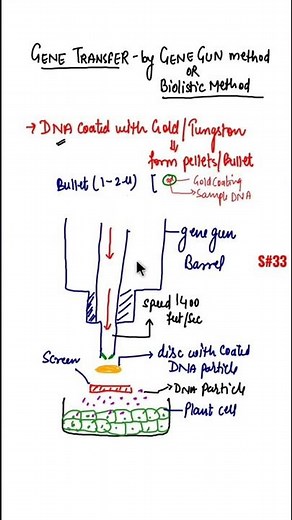 GENE TRANSFER - by GENE GUN method
OR
Biolistic Method
→ DNA coated with Gold/Tungston
form pellets/Bullet
Bullet (1-2-u) [
Gold coating
Sample DNA
gene gun
Barrel
S#33
speed 1400
feet/sec
Screen
disc with coated
DNA particle
DNA Particle
Plant cell